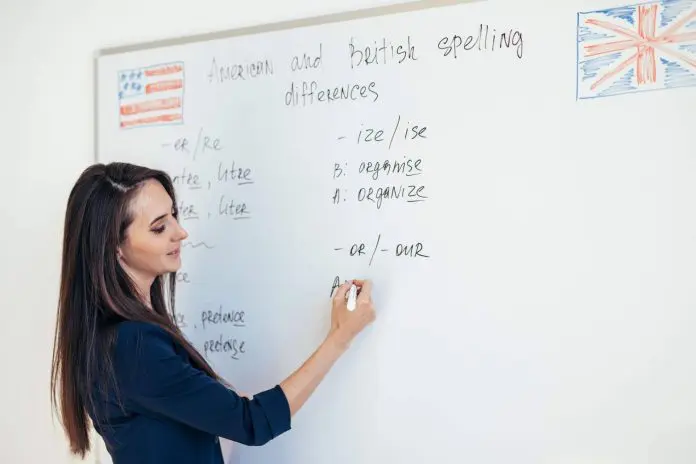 American and British spelling
differences
-er/re
ntre, litre
er, liter
ce
, pretence
pretense
- ize/ise
B: organise
A: organize
- or/- our
A